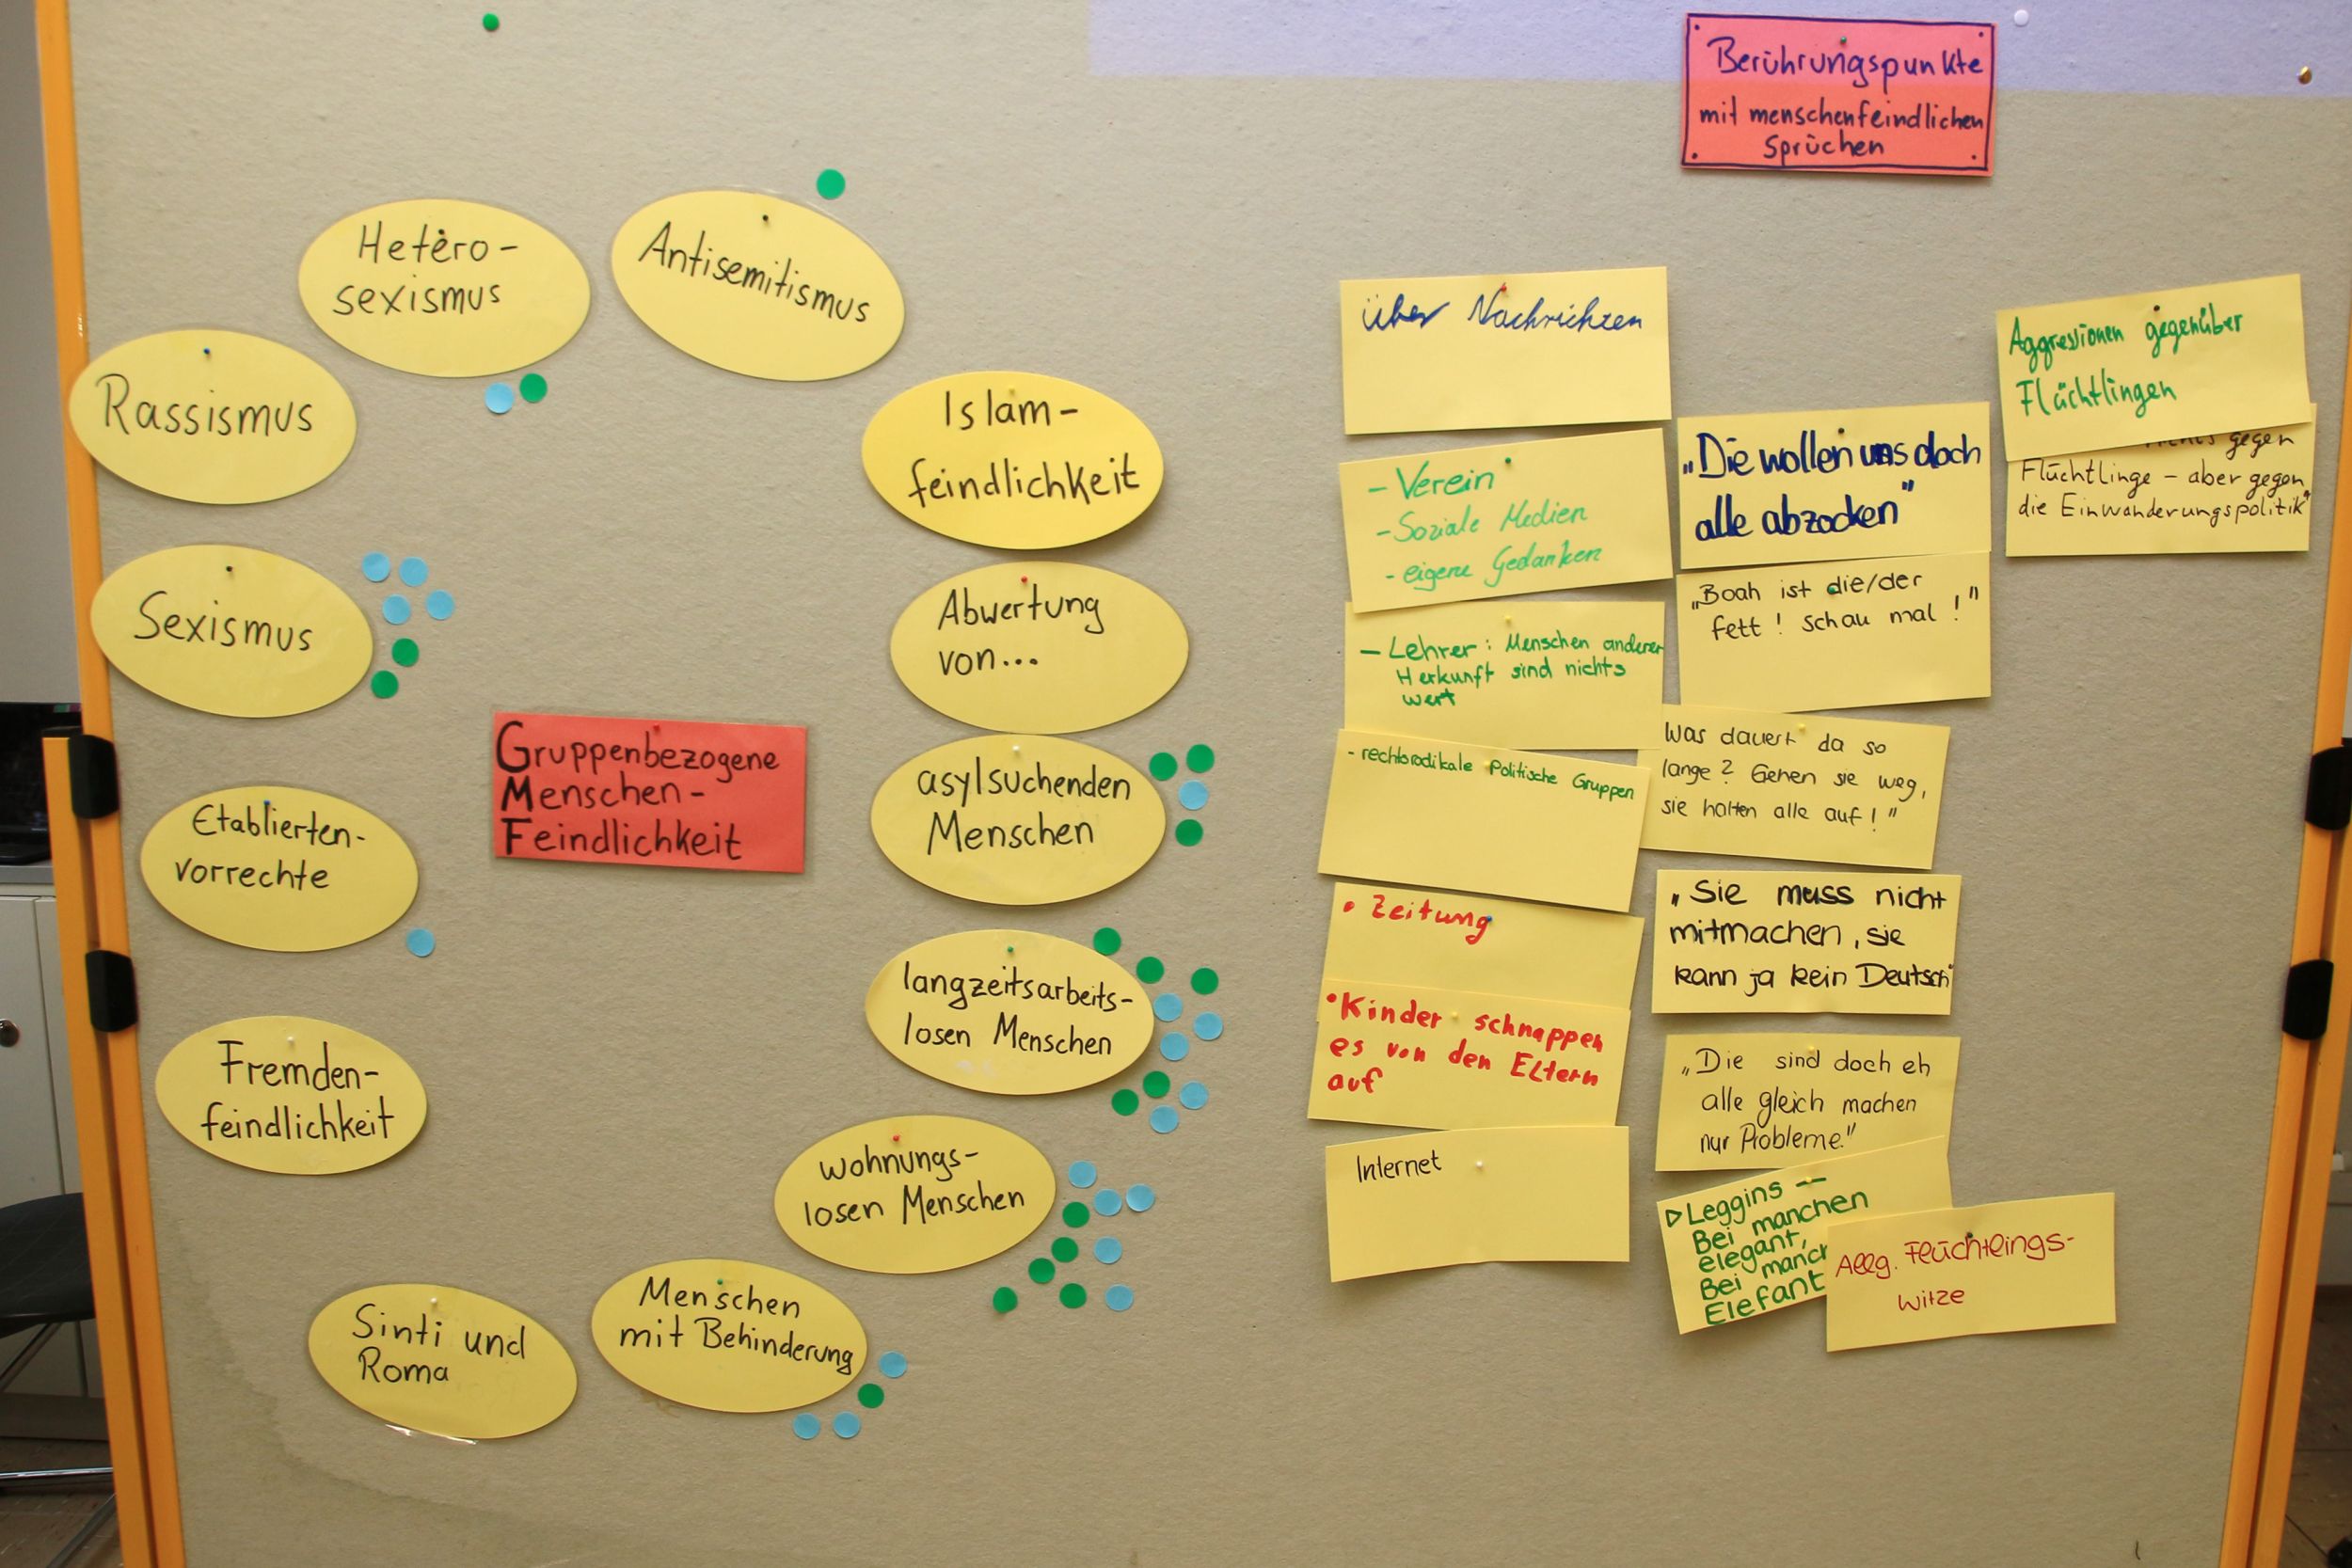 Hetero-
sexismus
Antisemitismus
Rassismus
Islam-
feindlichkeit
Sexismus
Abwertung
von...
Gruppenbezogene
Menschen-
Feindlichkeit
asylsuchenden
Menschen
Etablierten-
vorrechte
langzeitsarbeits-
losen Menschen
Fremden-
feindlichkeit
wohnungs-
losen Menschen
Menschen
mit Behinderung
Sinti und
Roma
Berührungspunkte
mit menschenfeindlichen
Sprüchen
über Nachrichten
- Verein
- Soziale Medien
- eigene Gedanken
- Lehrer: Menschen anderer
Herkunft sind nichts
wert
- rechtsradikale Politische Gruppen
• Zeitung
• Kinder schnappen
es von den Eltern
auf
Internet
„Die wollen uns doch
alle abzocken"
„Boah ist die/der
fett! schau mal!"
Was dauert da so
lange? Gehen sie weg,
sie halten alle auf!"
„Sie muss nicht
mitmachen, sie
kann ja kein Deutsch"
„Die sind doch eh
alle gleich machen
nur Probleme."
▷ Leggins --
Bei manchen
elegant,
Bei manch
Elefant
Allg. Flüchtlings-
witze
Aggressionen gegenüber
Flüchtlingen
gegen
Flüchtlinge - aber gegen
die Einwanderungspolitik"